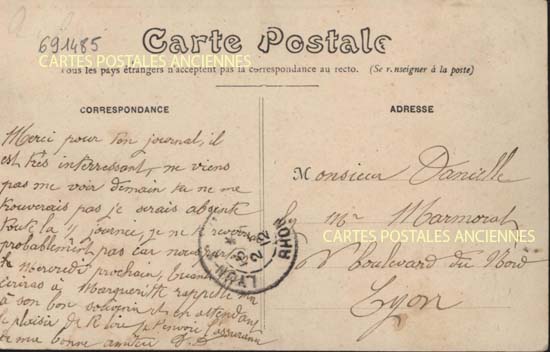 691485
Carte Postale
CARTES POSTALES ANCIENNES
Tous les pays étrangers n'acceptent pas la correspondance au recto. (Se renseigner à la poste)
CORRESPONDANCE
Merci pour ton journal, il
est très interressant, ne viens
pas me voir demain tu ne me
trouverais pas je serais absente
toute la journée, je ne
probablement pas car nous
le Mercredi prochain, quand
ecriras à Marguerite rappelle moi
à son bon souvenir et en attendant
le plaisir de te lire je t'envoie l'assurance
de ma bonne amitié
ADRESSE
Monsieur Danielle
Mr Marmorat
CARTES POSTALES ANCIENNES
Boulevard du Nord
Lyon
LYON
RHONE